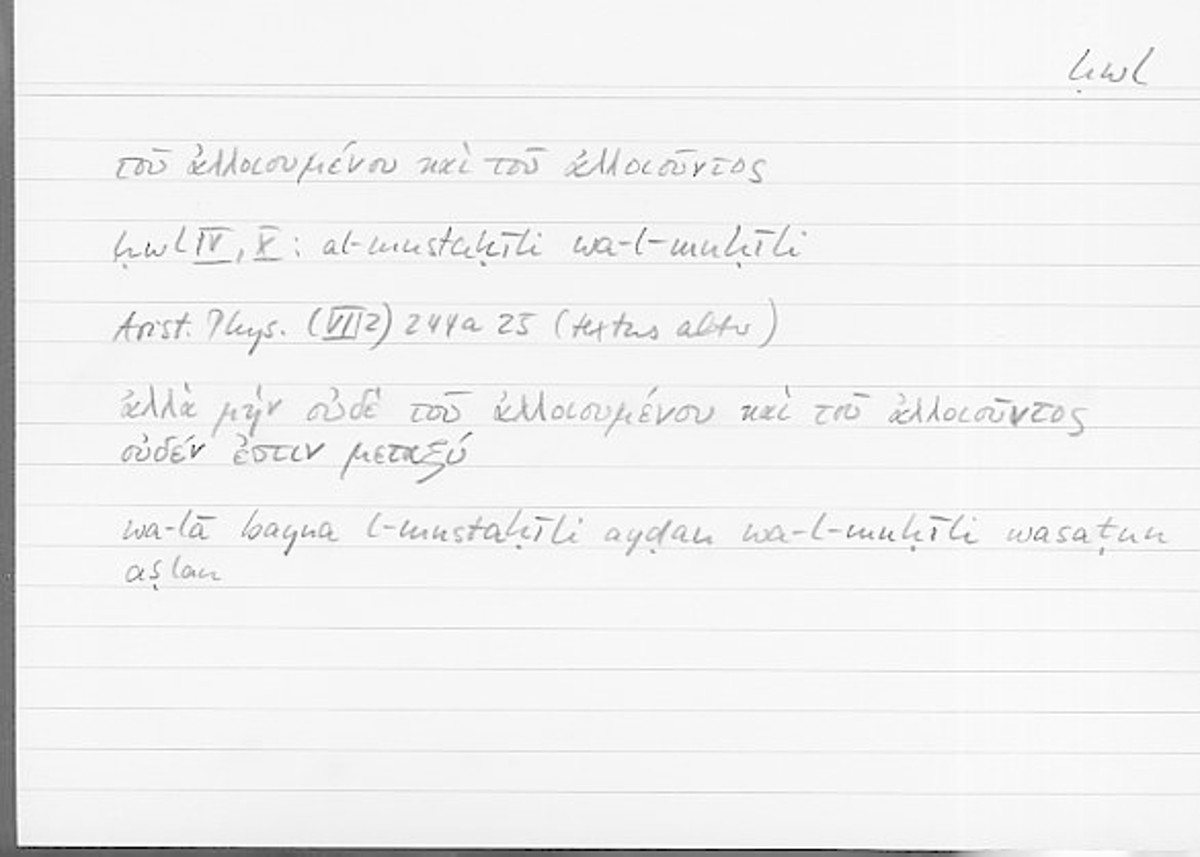 ḥwl
τοῦ ἀλλοιουμένου καὶ τοῦ ἀλλοιοῦντος
ḥwl IV, X: al-mustaḥīli wa-l-muḥīli
Arist. Phys. (VII 2) 244a 25 (textus alter)
ἀλλὰ μὴν οὐδὲ τοῦ ἀλλοιουμένου καὶ τοῦ ἀλλοιοῦντος
οὐδέν ἐστιν μεταξύ
wa-lā bayna l-mustaḥīli ayḍan wa-l-muḥīli wasaṭun
aṣlan